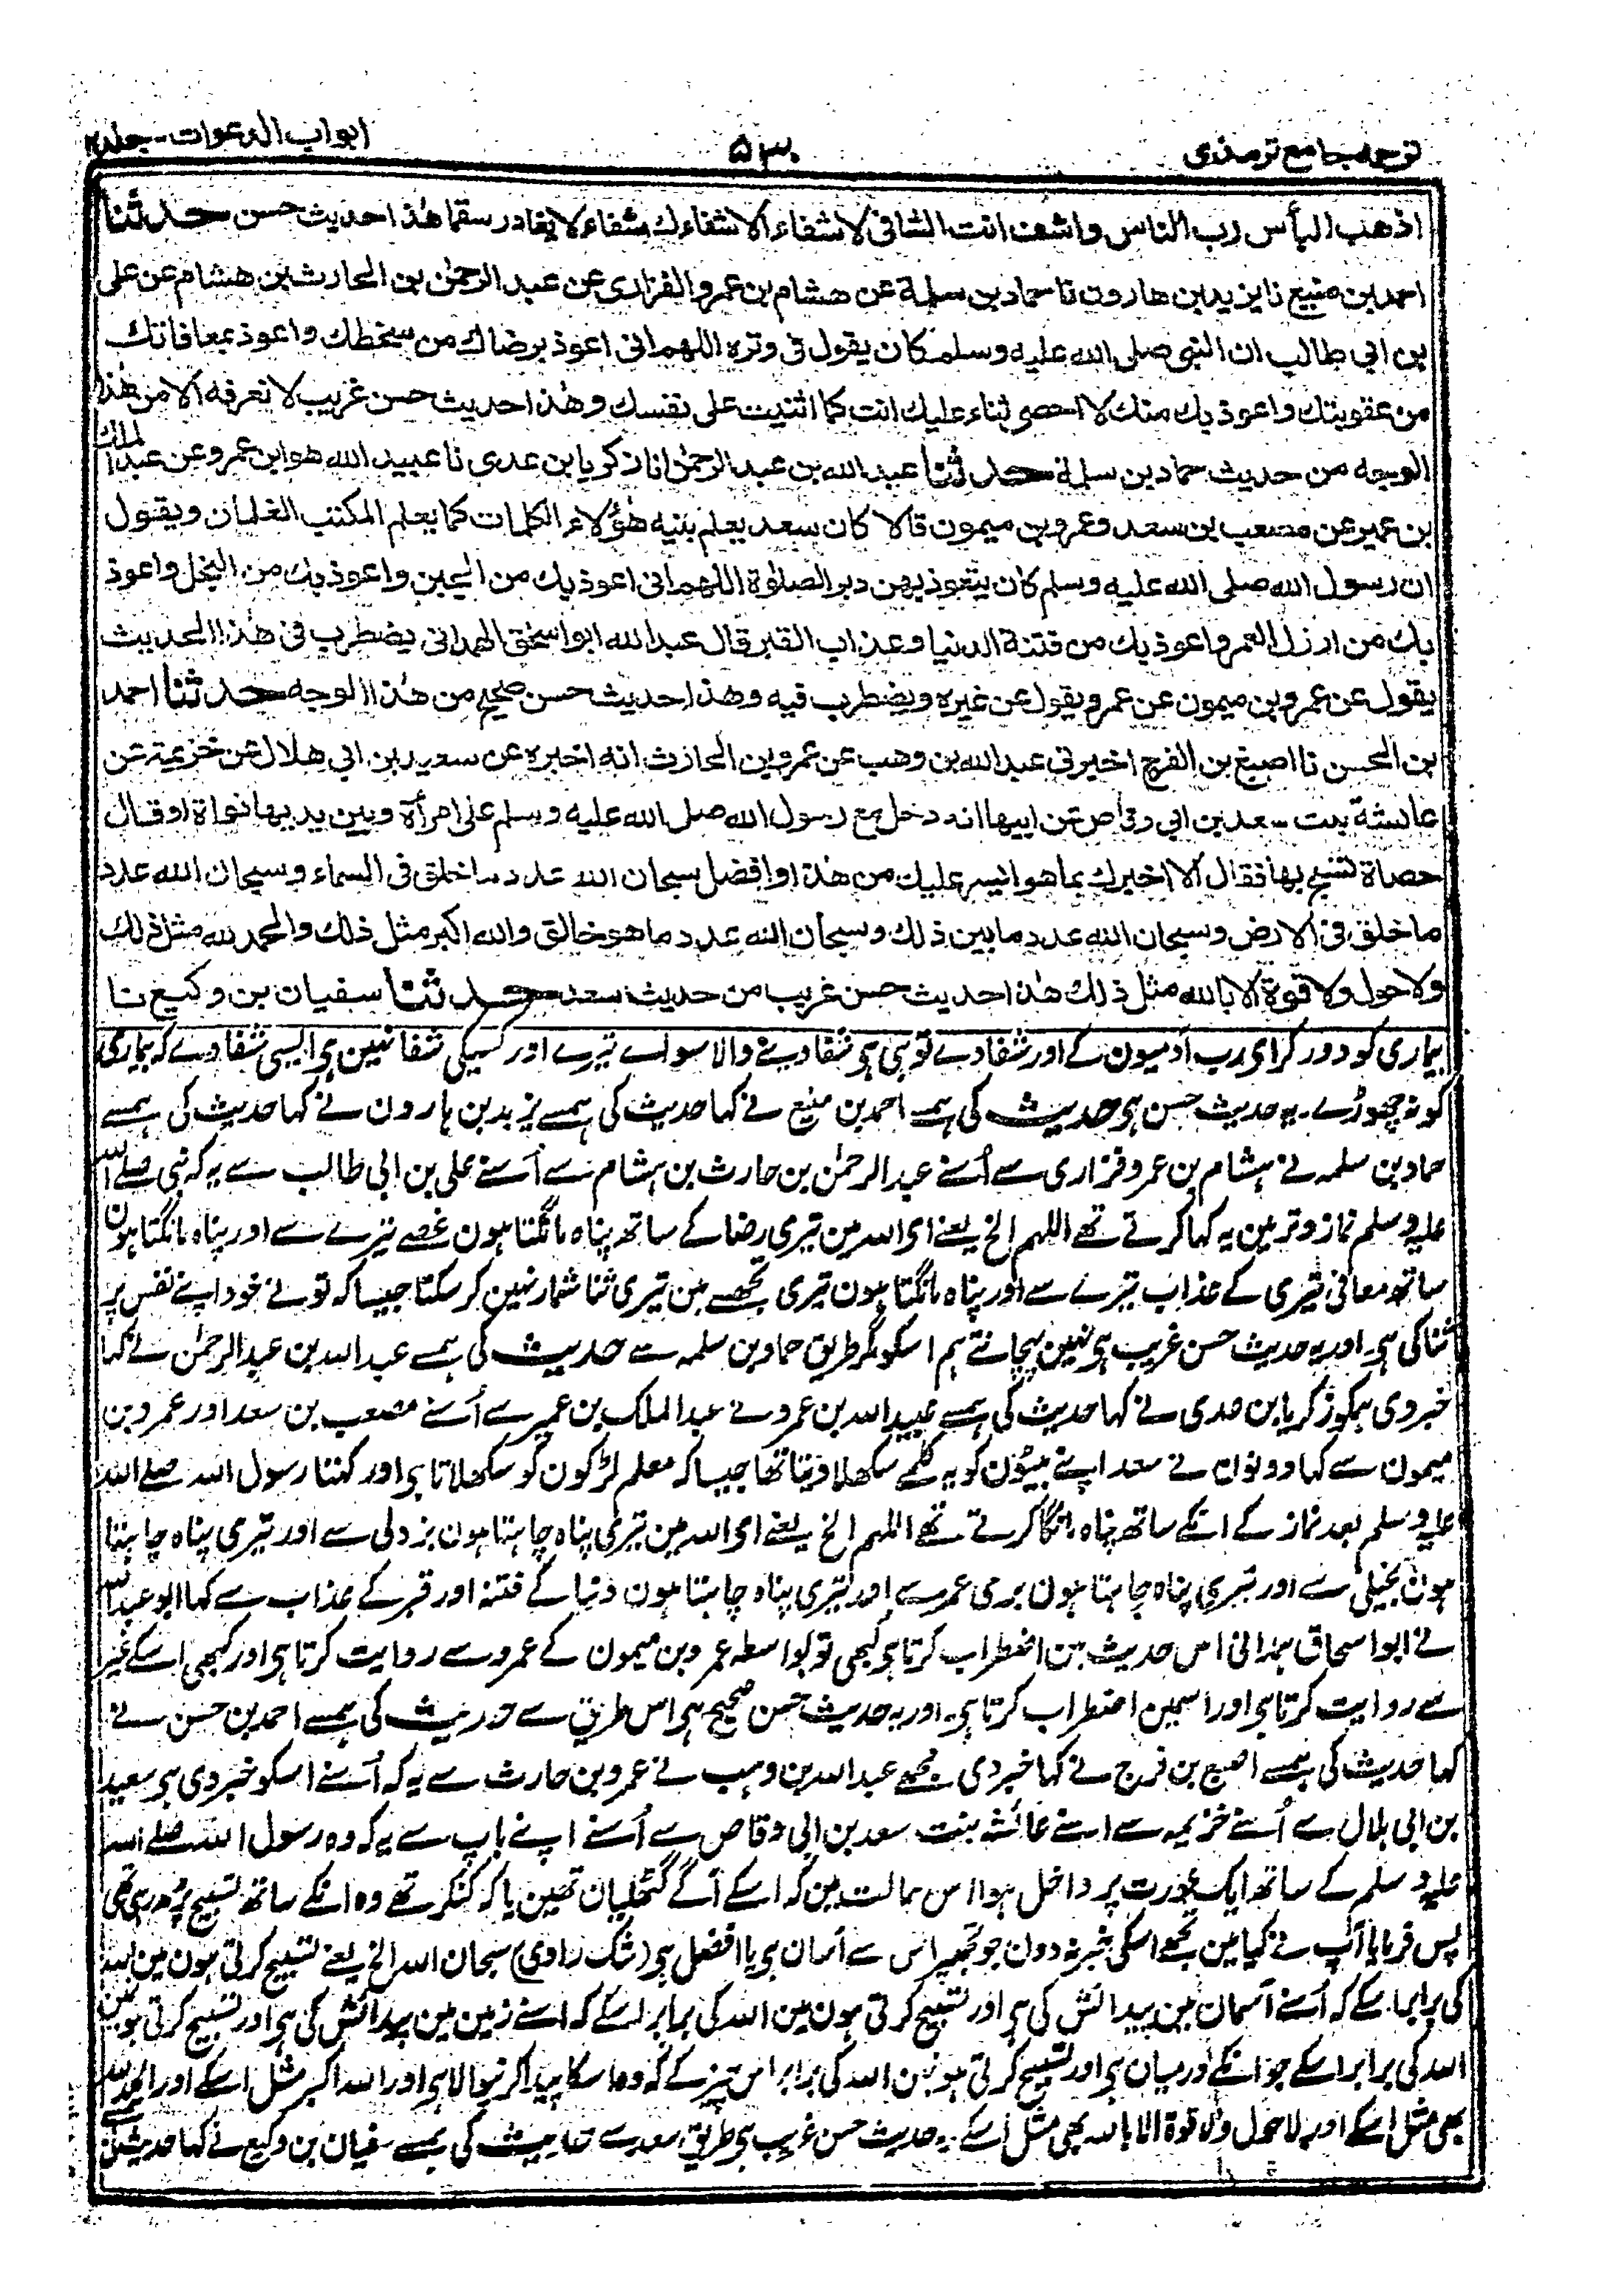 ترجمہ جامع ترمذی
۵۳۰
ابواب الدعوات - جلد ۲
اذهب البأس رب الناس واشف انت الشافی لا شفاء الا شفاءك شفاء لا یغادر سقما هٰذا حدیث حسن حدثنا
احمد بن منیع نا یزید بن هارون نا حماد بن سلمة عن هشام بن عمرو الفزاری عن عبد الرحمٰن بن الحارث بن هشام عن علی
بن ابی طالب ان النبی صلی الله علیه وسلم کان یقول فی وتره اللهم انی اعوذ برضاك من سخطك واعوذ بمعافاتك
من عقوبتك واعوذ بك منك لا احصی ثناء علیك انت کما اثنیت علی نفسك وهٰذا حدیث حسن غریب لا نعرفه الا من هٰذا
الوجه من حدیث حماد بن سلمة حدثنا عبد الله بن عبد الرحمٰن انا زکریا بن عدی نا عبید الله هو ابن عمرو عن عبد الملك
بن عمیر عن مصعب بن سعد وعمرو بن میمون قالا کان سعد یعلم بنیه هٰؤلاء الکلمات کما یعلم المکتب الغلمان ویقول
ان رسول الله صلی الله علیه وسلم کان یتعوذ بهن دبر الصلوٰة اللهم انی اعوذ بك من الجبن واعوذ بك من البخل واعوذ
بك من ارذل العمر واعوذ بك من فتنة الدنیا وعذاب القبر قال عبد الله ابو اسحٰق الهمدانی یضطرب فی هٰذا الحدیث
یقول عن عمرو بن میمون عن عمر ویقول عن غیره ویضطرب فیه وهٰذا حدیث حسن صحیح من هٰذا الوجه حدثنا احمد
بن الحسن نا اصبغ بن الفرج اخبرنی عبد الله بن وهب عن عمرو بن الحارث انه اخبره عن سعید بن ابی هلال عن خزیمة عن
عائشة بنت سعد بن ابی وقاص عن ابیها انه دخل مع رسول الله صلی الله علیه وسلم علی امرأة وبین یدیها نواة او قال
حصاة تسبح بها فقال الا اخبرك بما هو ایسر علیك من هٰذا او افضل سبحان الله عدد ما خلق فی السماء وسبحان الله عدد
ما خلق فی الارض وسبحان الله عدد ما بین ذلك وسبحان الله عدد ما هو خالق والله اکبر مثل ذلك والحمد لله مثل ذلك
ولا حول ولا قوة الا بالله مثل ذلك هٰذا حدیث حسن غریب من حدیث سعد حدثنا سفیان بن وکیع نا
بیماری کو دور کر ای رب آدمیون کے اور شفا دے تو ہی ہی شفا دینے والا سواے تیرے اور کسیکی شفا نہین ہی ایسی شفا دے کہ بیماری
کو نہ چھوڑے ۔ یہ حدیث حسن ہی حدیث کی ہمسے احمد بن منیع نے کہا حدیث کی ہمسے یزید بن ہارون نے کہا حدیث کی ہمسے
حماد بن سلمہ نے ہشام بن عمرو فزاری سے اُسنے عبد الرحمٰن بن حارث بن ہشام سے اُسنے علی بن ابی طالب سے یہ کہ نبی صلے اللہ
علیہ وسلم نماز وتر مین یہ کہا کرتے تھے اللهم الخ یعنے ای اللہ مین تیری رضا کے ساتھ پناہ مانگتا ہون غصے تیرے سے اور پناہ مانگتا ہون
ساتھ معافی تیری کے عذاب تیرے سے اور پناہ مانگتا ہون تیری تجھسے مین تیری ثنا شمار نہین کر سکتا جیسا کہ تو نے خود اپنے نفس پر
ثنا کی ہی ۔ اور یہ حدیث حسن غریب ہی نہین پہچانتے ہم اسکو مگر طریق حماد بن سلمہ سے حدیث کی ہمسے عبد اللہ بن عبد الرحمٰن نے کہا
خبر دی ہمکو زکریا بن عدی نے کہا حدیث کی ہمسے عبید اللہ بن عمرو نے عبد الملک بن عمیر سے اُسنے مصعب بن سعد اور عمرو بن
میمون سے کہا دونون نے سعد اپنے بیٹون کو یہ کلمے سکھلا دیتا تھا جیسا کہ معلم لڑکون کو سکھلاتا ہی اور کہتا رسول اللہ صلے اللہ
علیہ وسلم بعد نماز کے انکے ساتھ پناہ مانگا کرتے تھے اللهم الخ یعنے ای اللہ مین تیری پناہ چاہتا ہون بزدلی سے اور تیری پناہ چاہتا
ہون بخیلی سے اور تیری پناہ چاہتا ہون بری عمر سے اور تیری پناہ چاہتا ہون دنیا کے فتنہ اور قبر کے عذاب سے کہا ابو عبد اللہ
نے ابو اسحاق ہمدانی اس حدیث مین اضطراب کرتا ہی کبھی تو بواسطہ عمرو بن میمون کے عمرو سے روایت کرتا ہی اور کبھی اسکے غیر
سے روایت کرتا ہی اور اسمین اضطراب کرتا ہی ۔ اور یہ حدیث حسن صحیح ہی اس طریق سے حدیث کی ہمسے احمد بن حسن نے
کہا حدیث کی ہمسے اصبغ بن فرج نے کہا خبر دی مجھے عبد اللہ بن وہب نے عمرو بن حارث سے یہ کہ اُسنے اسکو خبر دی ہی سعید
بن ابی ہلال سے اُسنے خزیمہ سے اسنے عائشہ بنت سعد بن ابی وقاص سے اُسنے اپنے باپ سے یہ کہ وہ رسول اللہ صلے اللہ
علیہ وسلم کے ساتھ ایک عورت پر داخل ہوا اس حالت مین کہ اسکے آگے گٹھلیان تھین یا کہ کنکر تھے وہ انکے ساتھ تسبیح پڑھ رہی تھی
پس فرمایا آپ نے کیا مین تجھے اسکی خبر نہ دون جو تجھپر اس سے آسان ہی یا افضل ہی (شک راوی) سبحان اللہ الخ یعنے تسبیح کرتی ہون مین اللہ
کی برابر اسکے کہ اُسنے آسمان مین پیدائش کی ہی اور تسبیح کرتی ہون مین اللہ کی برابر اسکے کہ اسنے زمین مین پیدائش کی ہی اور تسبیح کرتی ہون مین
اللہ کی برابر اسکے جو انکے درمیان ہی اور تسبیح کرتی ہون مین اللہ کی برابر اس چیز کے کہ وہ اسکا پیدا کرنیوالا ہی اور اللہ اکبر مثل اسکے اور الحمد للہ
بھی مثل اسکے اور لا حول ولا قوة الا باللہ بھی مثل اسکے ۔ یہ حدیث حسن غریب ہی طریق سعد سے حدیث کی ہمسے سفیان بن وکیع نے کہا حدیث کی ہمسے